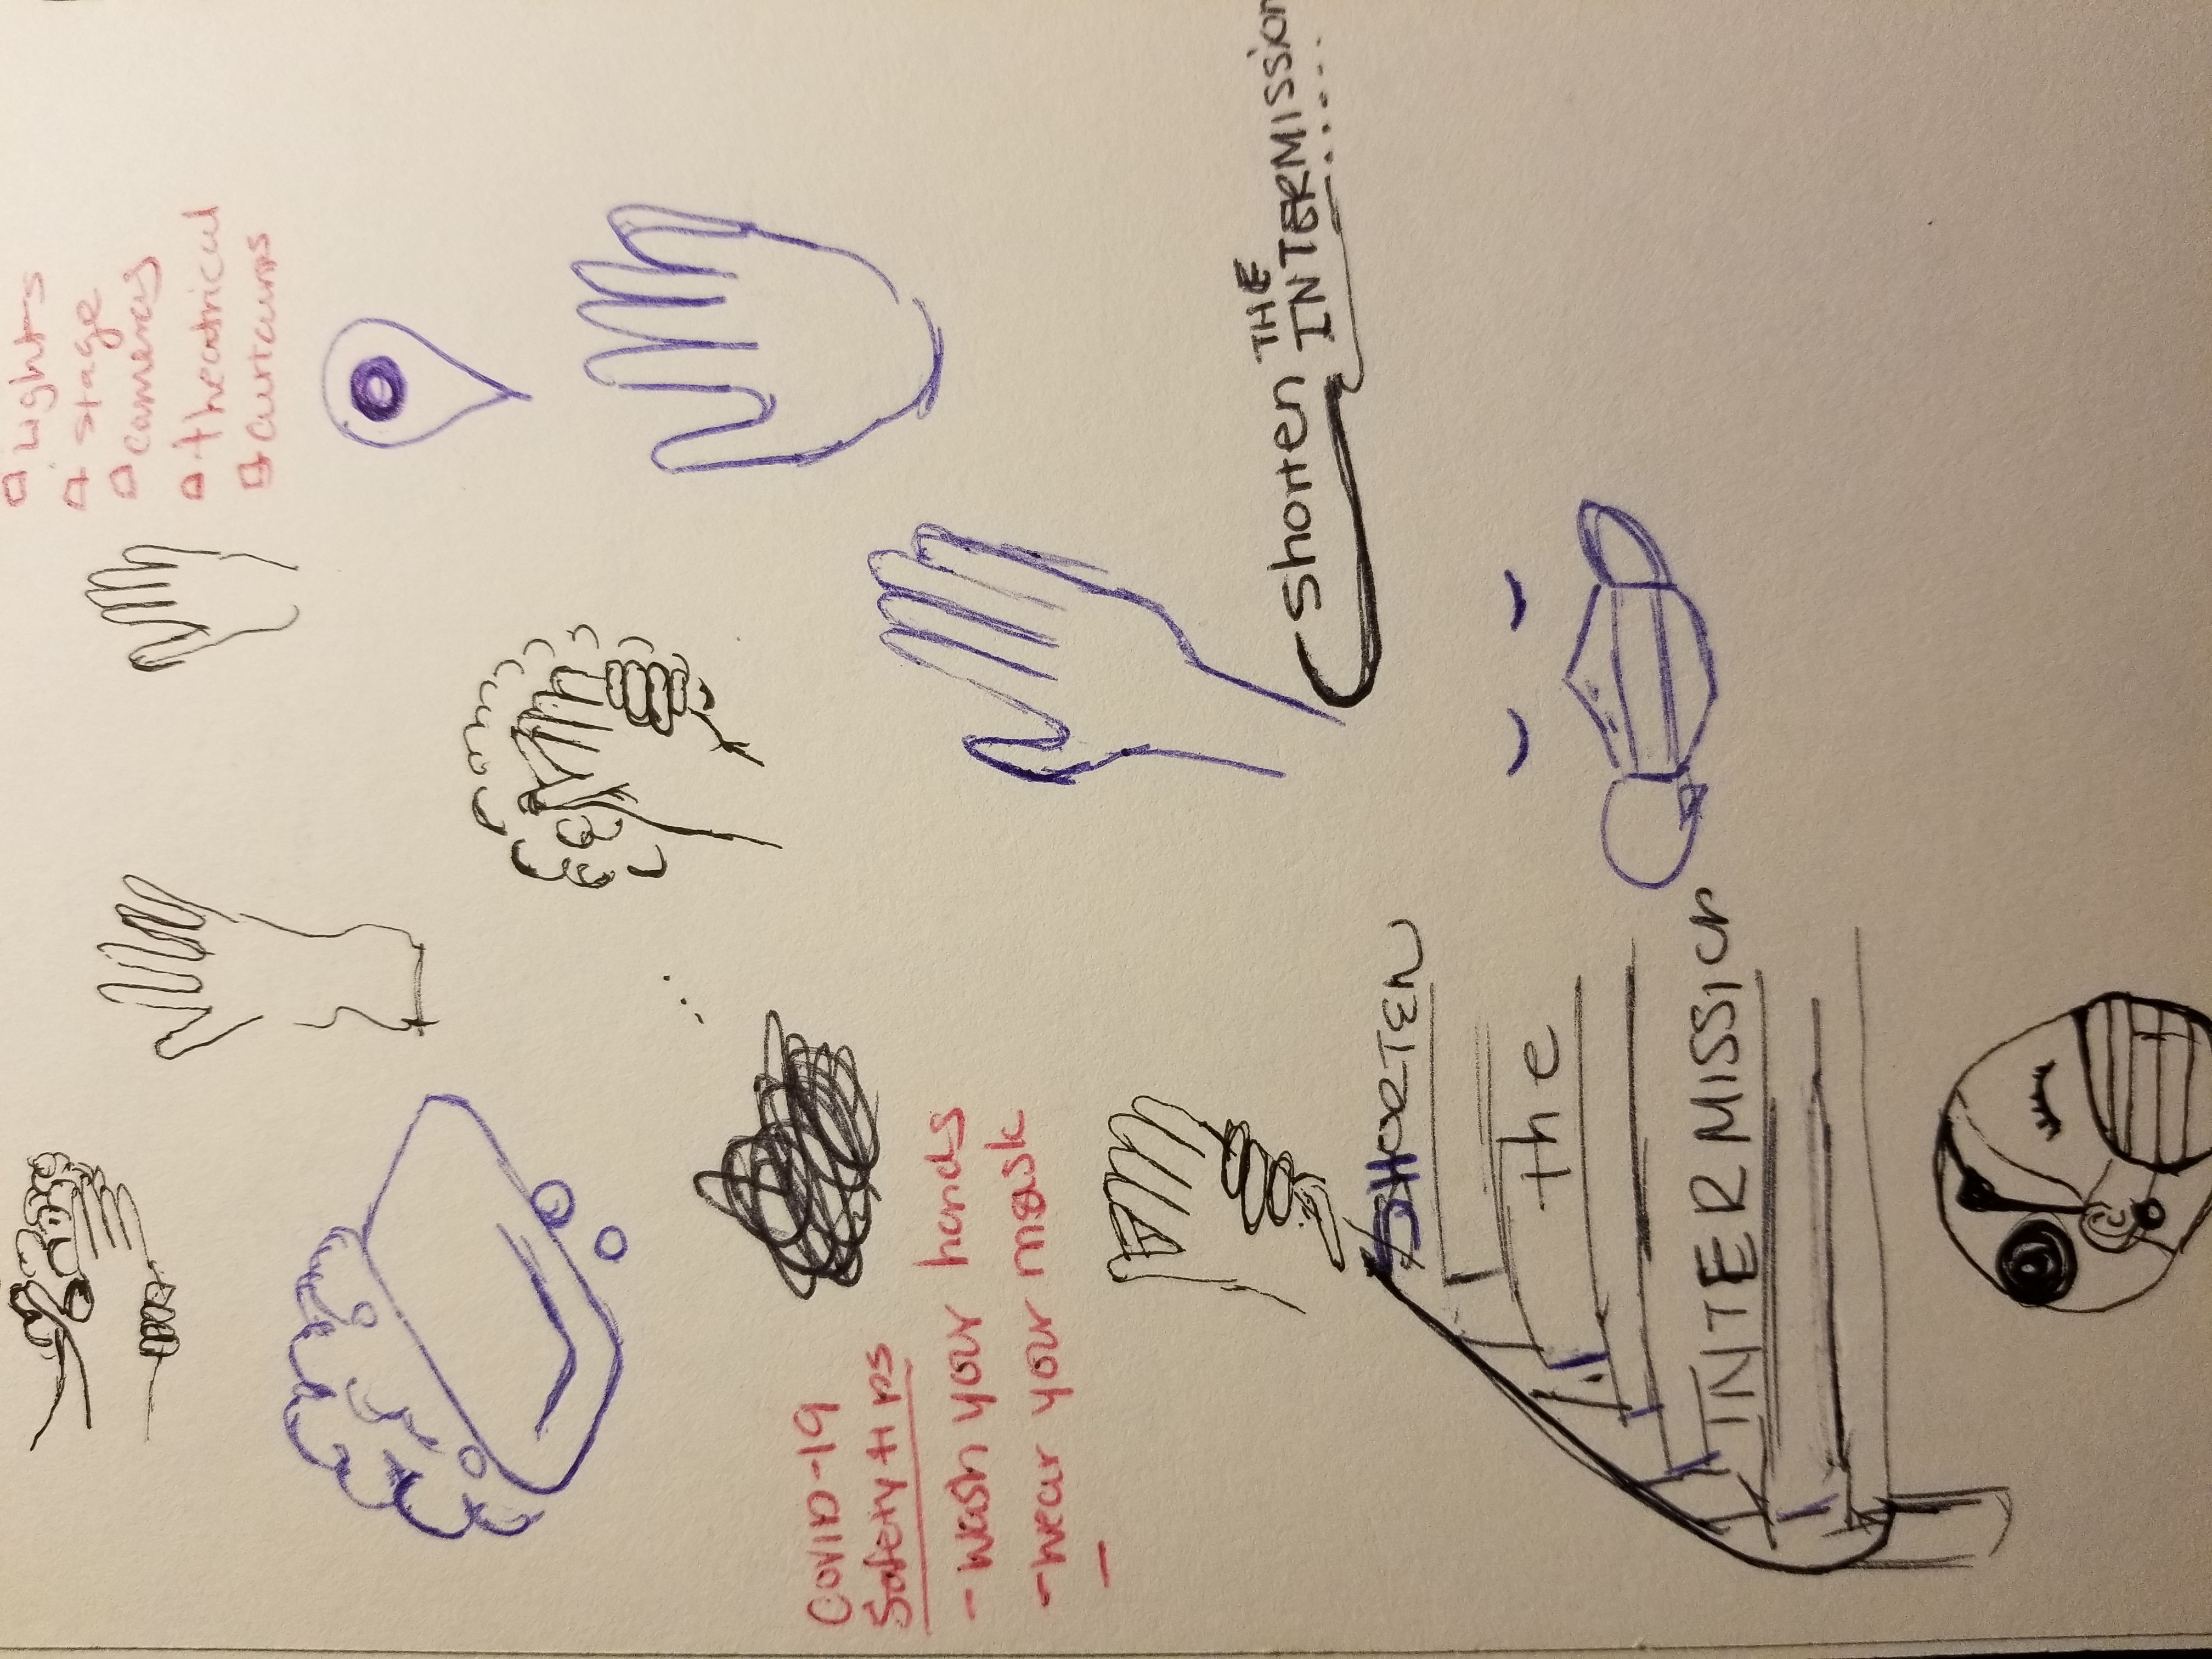 Lights
stage
cameras
theatrical
curtains
COVID-19
Safety tips
- wash your hands
- wear your mask
-
Shorten THE
INTERMISSION
SHORTEN
the
INTERMISSION